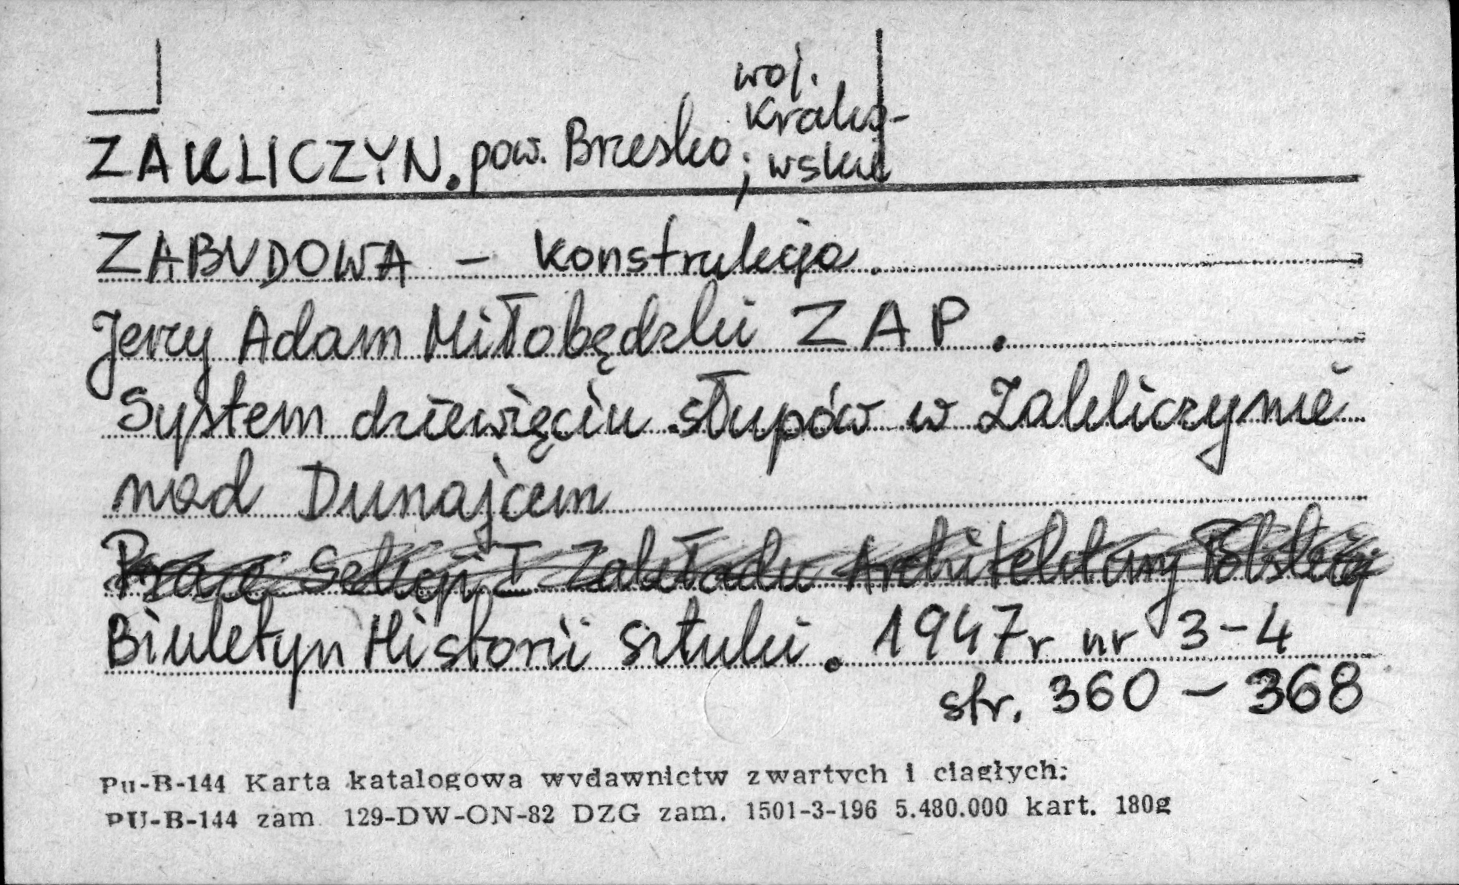 ZAKLICZYN. pow. Brzesko; woj. Krako-
wskie
ZABUDOWA – Konstrukcja.
Jerzy Adam Miłobędzki ZAP.
System dziewięciu słupów w Zakliczynie
nad Dunajcem
Prace Sekcji I Zakładu Architektury Polskiej
Biuletyn Historii Sztuki. 1947r nr 3-4
str. 360 – 368
Pu-B-144 Karta katalogowa wydawnictw zwartych i ciągłych:
PU-B-144 zam. 129-DW-ON-82 DZG zam. 1501-3-196 5.480.000 kart. 180g